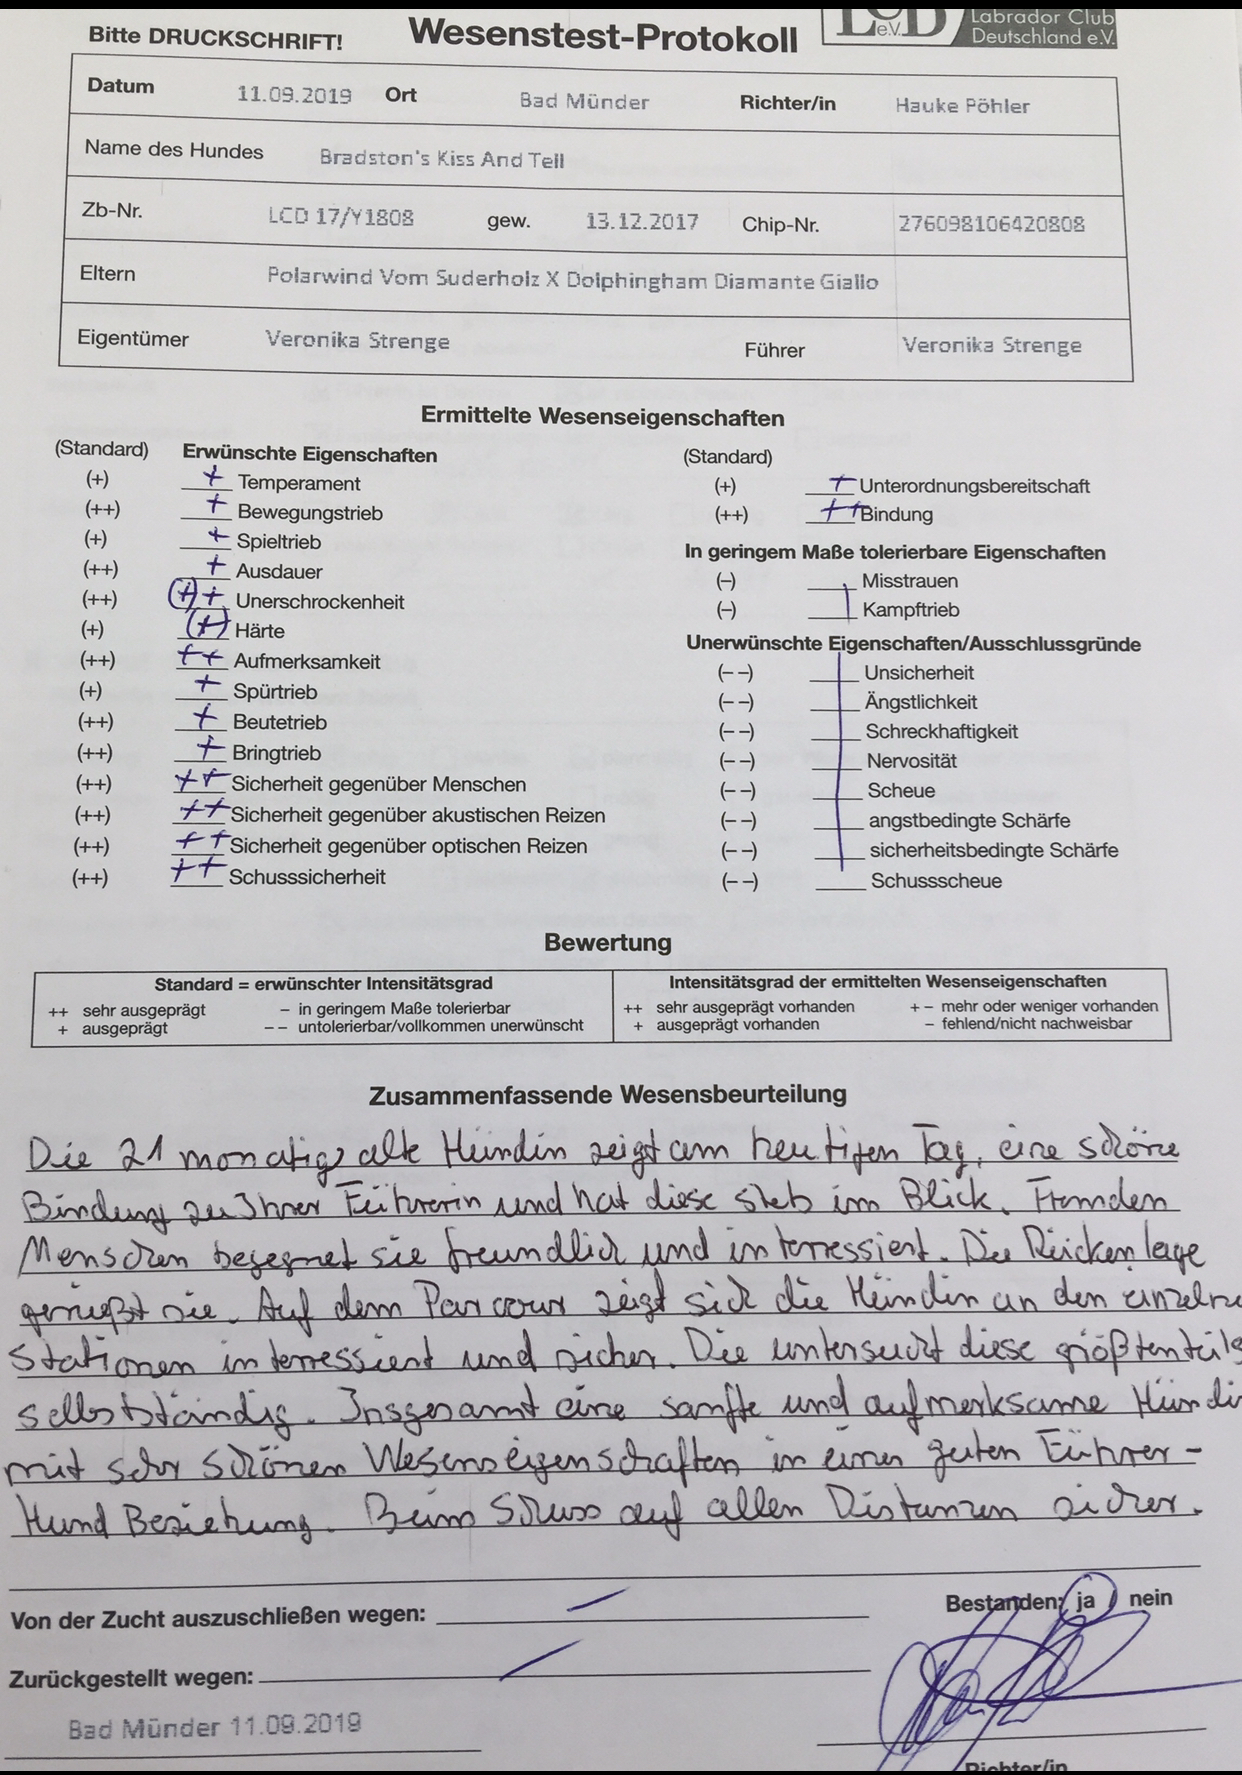 Bitte DRUCKSCHRIFT! Wesenstest-Protokoll LCD e.V. Labrador Club
Deutschland e.V.
Datum 11.09.2019 Ort Bad Münder Richter/in Hauke Pöhler
Name des Hundes Bradston's Kiss And Tell
Zb-Nr. LCD 17/Y1808 gew. 13.12.2017 Chip-Nr. 276098106420808
Eltern Polarwind Vom Suderholz X Dolphingham Diamante Giallo
Eigentümer Veronika Strenge Führer Veronika Strenge
Ermittelte Wesenseigenschaften
(Standard) Erwünschte Eigenschaften
(+) + Temperament
(++) + Bewegungstrieb
(+) + Spieltrieb
(++) + Ausdauer
(++) (+)+ Unerschrockenheit
(+) (+) Härte
(++) ++ Aufmerksamkeit
(+) + Spürtrieb
(++) + Beutetrieb
(++) + Bringtrieb
(++) ++ Sicherheit gegenüber Menschen
(++) ++ Sicherheit gegenüber akustischen Reizen
(++) ++ Sicherheit gegenüber optischen Reizen
(++) ++ Schusssicherheit
(Standard)
(+) + Unterordnungsbereitschaft
(++) ++ Bindung
In geringem Maße tolerierbare Eigenschaften
(–) Misstrauen
(–) Kampftrieb
Unerwünschte Eigenschaften/Ausschlussgründe
(– –) Unsicherheit
(– –) Ängstlichkeit
(– –) Schreckhaftigkeit
(– –) Nervosität
(– –) Scheue
(– –) angstbedingte Schärfe
(– –) sicherheitsbedingte Schärfe
(– –) Schussscheue
Bewertung
Standard = erwünschter Intensitätsgrad
++ sehr ausgeprägt – in geringem Maße tolerierbar
+ ausgeprägt – – untolerierbar/vollkommen unerwünscht
Intensitätsgrad der ermittelten Wesenseigenschaften
++ sehr ausgeprägt vorhanden + – mehr oder weniger vorhanden
+ ausgeprägt vorhanden – fehlend/nicht nachweisbar
Zusammenfassende Wesensbeurteilung
Die 21 monatige alte Hündin zeigt am heutigen Tag, eine schöne
Bindung zu Ihrer Führerin und hat diese stets im Blick. Fremden
Menschen begegnet sie freundlich und interressiert. Die Rückenlage
genießt sie. Auf dem Parcour zeigt sich die Hündin an den einzelne
Stationen interressiert und sicher. Die untersucht diese größtenteils
selbstständig. Insgesamt eine sanfte und aufmerksame Hündi
mit sehr schönen Wesenseigenschaften in einer guten Führer-
Hund Beziehung. Beim Schuss auf allen Distanzen sicher.
Von der Zucht auszuschließen wegen: Bestanden: ja / nein
Zurückgestellt wegen:
Bad Münder 11.09.2019
Richter/in